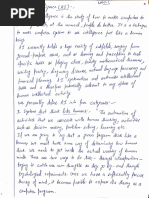 (AI) :-
is the study of how to make computers do
at the moment, people do better. It is a technique
to make computer system to use intelligence for like a human
being.
AI currently holds a huge variety of subfields, varying from
general purpose areas, such as learning and perception to such
specific tasks as playing chess, proving mathematical theorems,
writing poetry, diagnosing diseases, natural language processing and
AI systematizes and automates intellectual
tasks and is therefore potentially relevant to any sphere of
human intellectual activity.
We generally define AI into four categories:-
1. System that think like humans :- The automation of
activities that we associate with human thinking, activities
such as decision making, problem solving, learning
etc. If we are going to say that a given program
thinks like a human, we must have some way of
determining how humans think. For
that we need to get inside the actual working of
human minds. There are two ways to do this: through
trying to catch our own thoughts as they go by and through
Psychological experiments. Once we have a sufficiently precise
theory of mind, it becomes possible to express the theory as a
computer program.